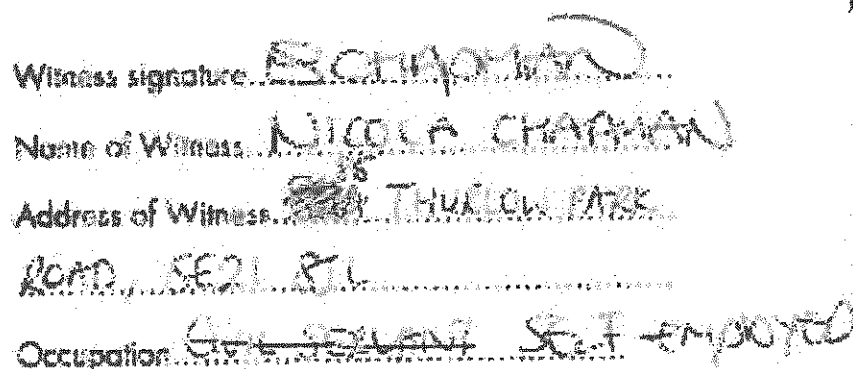 Witness signature
Name of Witness NICOLA CHAPMAN
Address of Witness THURLOW PARK
ROAD, SE21
Occupation CIVIL SERVANT SELF-EMPLOYED